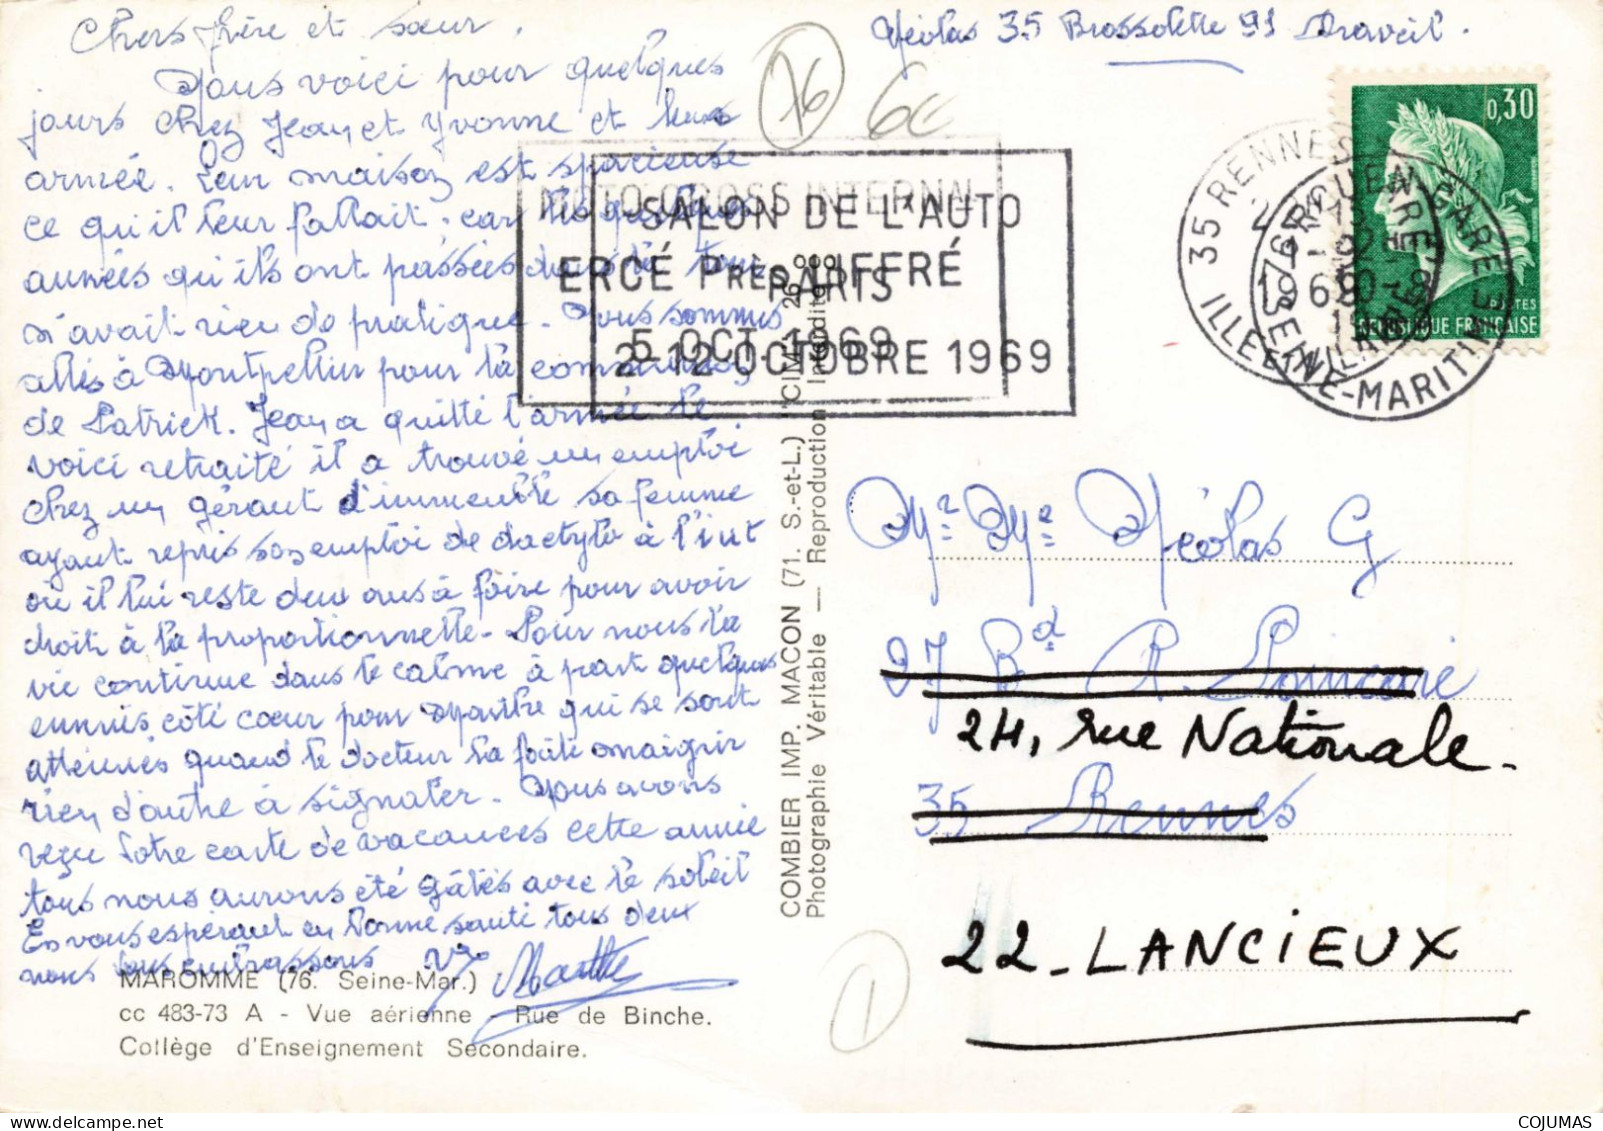 Chers frère et sœur,
Nous voici pour quelques
jours chez Jean et Yvonne et leur
armée. Leur maison est spacieuse
ce qu'il leur fallait : car les quelques
années qu'ils ont passées dans le tour
n'avait rien de pratique. Nous sommes
allés à Montpellier pour la communion
de Patrick. Jean a quitté l'armée le
voici retraité il a trouvé un emploi
chez un gérant d'immeuble sa femme
ayant repris son emploi de dactylo à l'int
où il lui reste deux ans à faire pour avoir
droit à la proportionnelle. Pour nous la
vie continue dans le calme à part quelques
ennuis côté cœur pour Marthe qui se sont
atténués quand le docteur l'a faite maigrir
rien d'autre à signaler. Nous avons
reçu votre carte de vacances cette année
tous nous aurons été gâtés avec le soleil
En vous espérant en bonne santé tous deux
nous vous embrassons
Marthe
MAROMME (76. Seine-Mar.)
cc 483-73 A - Vue aérienne - Rue de Binche.
Collège d'Enseignement Secondaire.
COMBIER IMP. MACON (71. S.-et-L.) "CIM"
Photographie Véritable — Reproduction Interdite
Néolas 35 Brossolette 91 Draveil.
76
6€
MOTO CROSS INTERNAL
ERCÉ PRÈS LIFFRÉ
5 OCT. 1969
SALON DE L'AUTO
PARIS
2-12 OCTOBRE 1969
35 RENNES GARE
ILLE ET VILAINE
76 ROUEN GARE
SEINE-MARITIME
0,30
POSTES
REPUBLIQUE FRANÇAISE
Mr Me Néolas G
27 Bd R. Poincaré
24, rue Nationale.
35 Rennes
22_LANCIEUX
1
COJUMAS